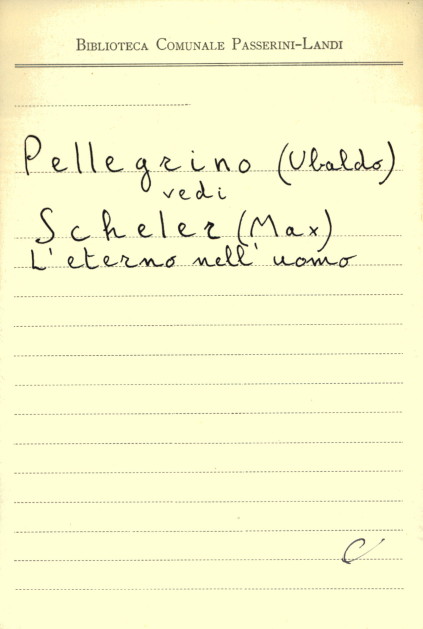 Biblioteca Comunale Passerini-Landi
Pellegrino (Ubaldo)
vedi
Scheler (Max)
L'eterno nell'uomo